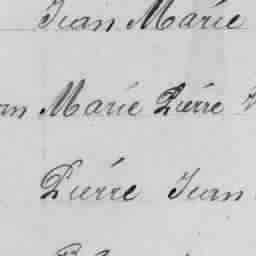 Jean Marie
Marie Pierre
Pierre Jean